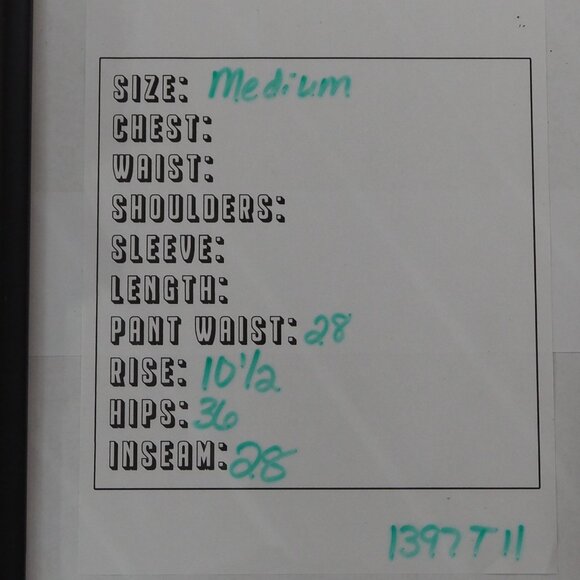 SIZE: Medium
CHEST:
WAIST:
SHOULDERS:
SLEEVE:
LENGTH:
PANT WAIST: 28
RISE: 10 1/2
HIPS: 36
INSEAM: 28
1397 T 11